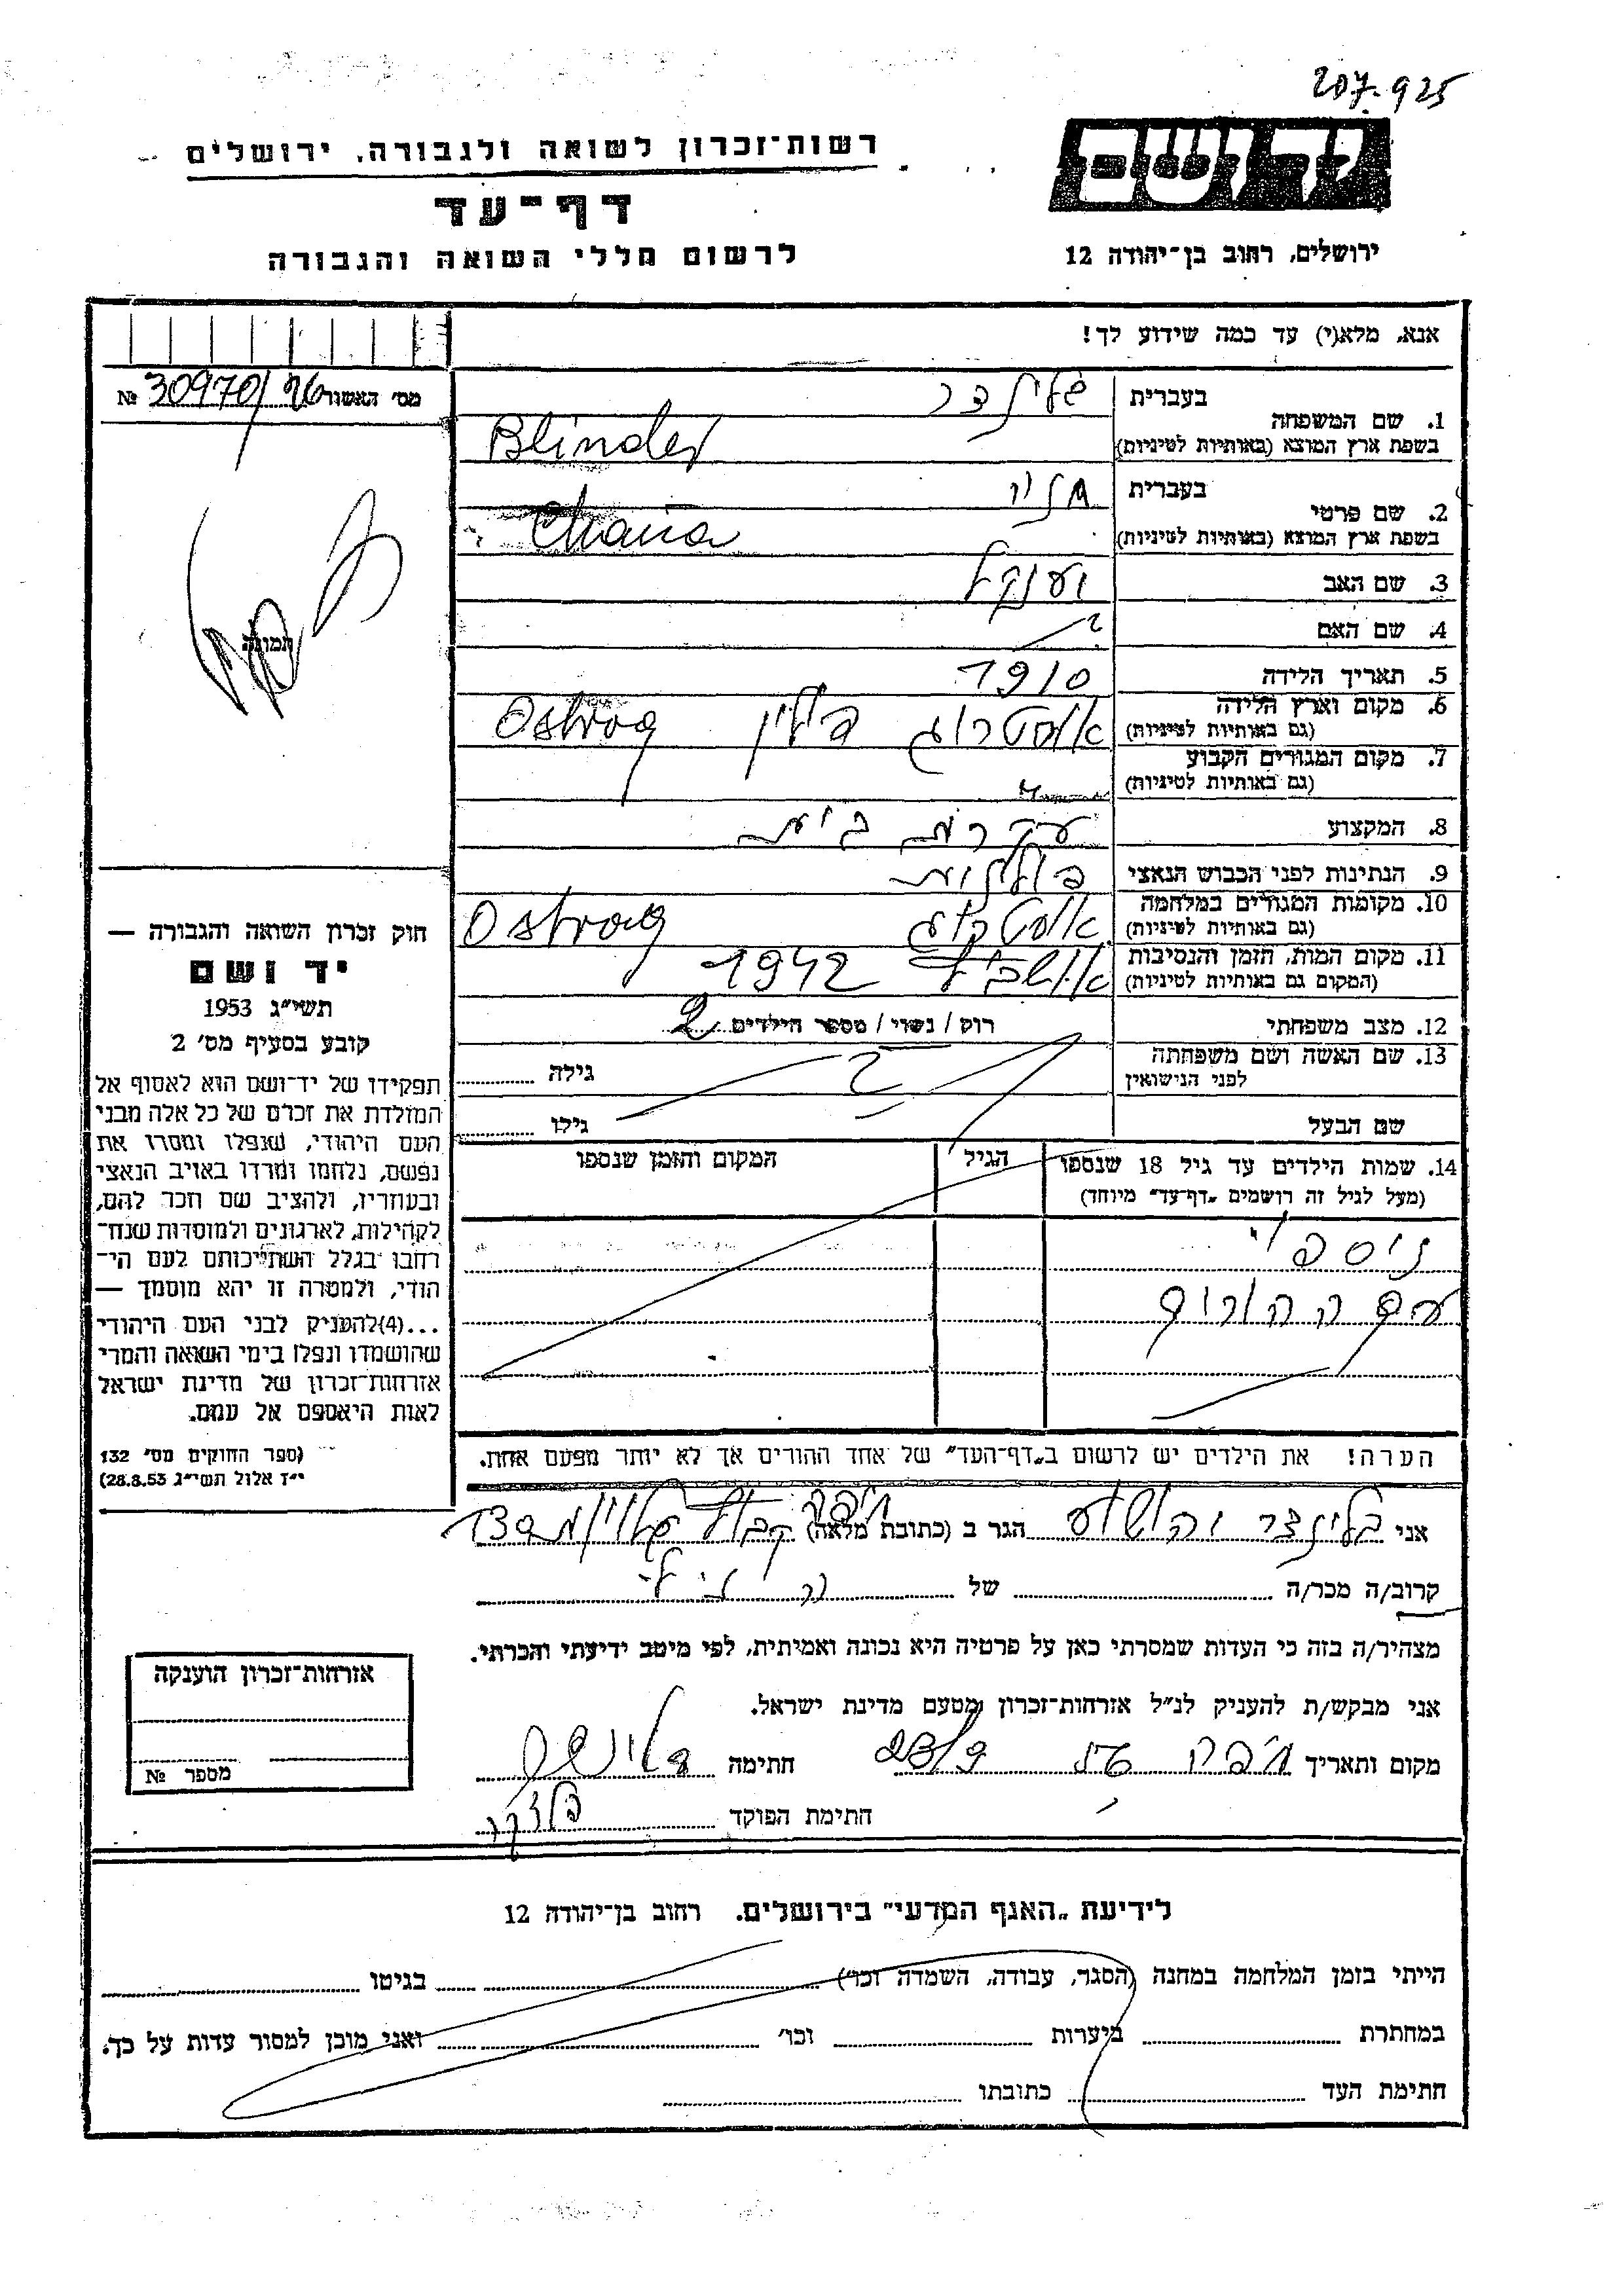 207.925
רשות־זכרון לשואה ולגבורה, ירושלים
דף־עד
לרשום חללי השואה והגבורה
יד ושם
ירושלים, רחוב בן־יהודה 12
אנא, מלא(י) עד כמה שידוע לך!
מס׳ האשור № 30970/
1. שם המשפחה
בעברית בלינדר
בשפת ארץ המוצא (באותיות לטיניות) Blinder
2. שם פרטי
בעברית חיה
בשפת ארץ המוצא (באותיות לטיניות) Chaia
3. שם האב יענקל
4. שם האם ?
5. תאריך הלידה 1910
6. מקום וארץ הלידה (גם באותיות לטיניות) אוסטרוג פולין Ostrog
7. מקום המגורים הקבוע (גם באותיות לטיניות)
8. המקצוע עקרת בית
9. הנתינות לפני הכבוש הנאצי פולנית
10. מקומות המגורים במלחמה (גם באותיות לטיניות) אוסטרוג Ostrog
11. מקום המות, הזמן והנסיבות (המקום גם באותיות לטיניות) 1942
12. מצב משפחתי רוק / נשוי / מספר הילדים 2
13. שם האשה ושם משפחתה לפני הנישואין ? גילה
שם הבעל גילו
14. שמות הילדים עד גיל 18 שנספו (מעל לגיל זה רושמים „דף־עד״ מיוחד)
הגיל
המקום והזמן שנספו
ניספו
עם ההורים
הערה! את הילדים יש לרשום ב„דף־העד״ של אחד ההורים אך לא יותר מפעם אחת.
תמונה
חוק זכרון השואה והגבורה —
יד ושם
תשי״ג 1953
קובע בסעיף מס׳ 2
תפקידו של יד־ושם הוא לאסוף אל
המולדת את זכרם של כל אלה מבני
העם היהודי, שנפלו ומסרו את
נפשם, נלחמו ומרדו באויב הנאצי
ובעוזריו, ולהציב שם וזכר להם,
לקהילות, לארגונים ולמוסדות שנח־
רחבו בגלל השתייכותם לעם הי־
הודי, ולמטרה זו יהא מוסמך —
...(4) להעניק לבני העם היהודי
שהושמדו ונפלו בימי השואה והמרי
אזרחות־זכרון של מדינת ישראל
לאות היאספם אל עמם.
(ספר החוקים מס׳ 132
י״ז אלול תשי״ג 28.8.53)
אני בלינדר יהושע הגר ב (כתובת מלאה) חיפה
קרוב/ה מכר/ה של
מצהיר/ה בזה כי העדות שמסרתי כאן על פרטיה היא נכונה ואמיתית, לפי מיטב ידיעתי והכרתי.
אני מבקש/ת להעניק לנ״ל אזרחות־זכרון מטעם מדינת ישראל.
מקום ותאריך חיפה חתימה
חתימת הפוקד
אזרחות־זכרון הוענקה
מספר №
לידיעת „האגף המדעי״ בירושלים. רחוב בן־יהודה 12
הייתי בזמן המלחמה במחנה (הסגר, עבודה, השמדה וכו׳) בגיטו
במחתרת ביערות וכו׳ ואני מוכן למסור עדות על כך.
חתימת העד כתובתו